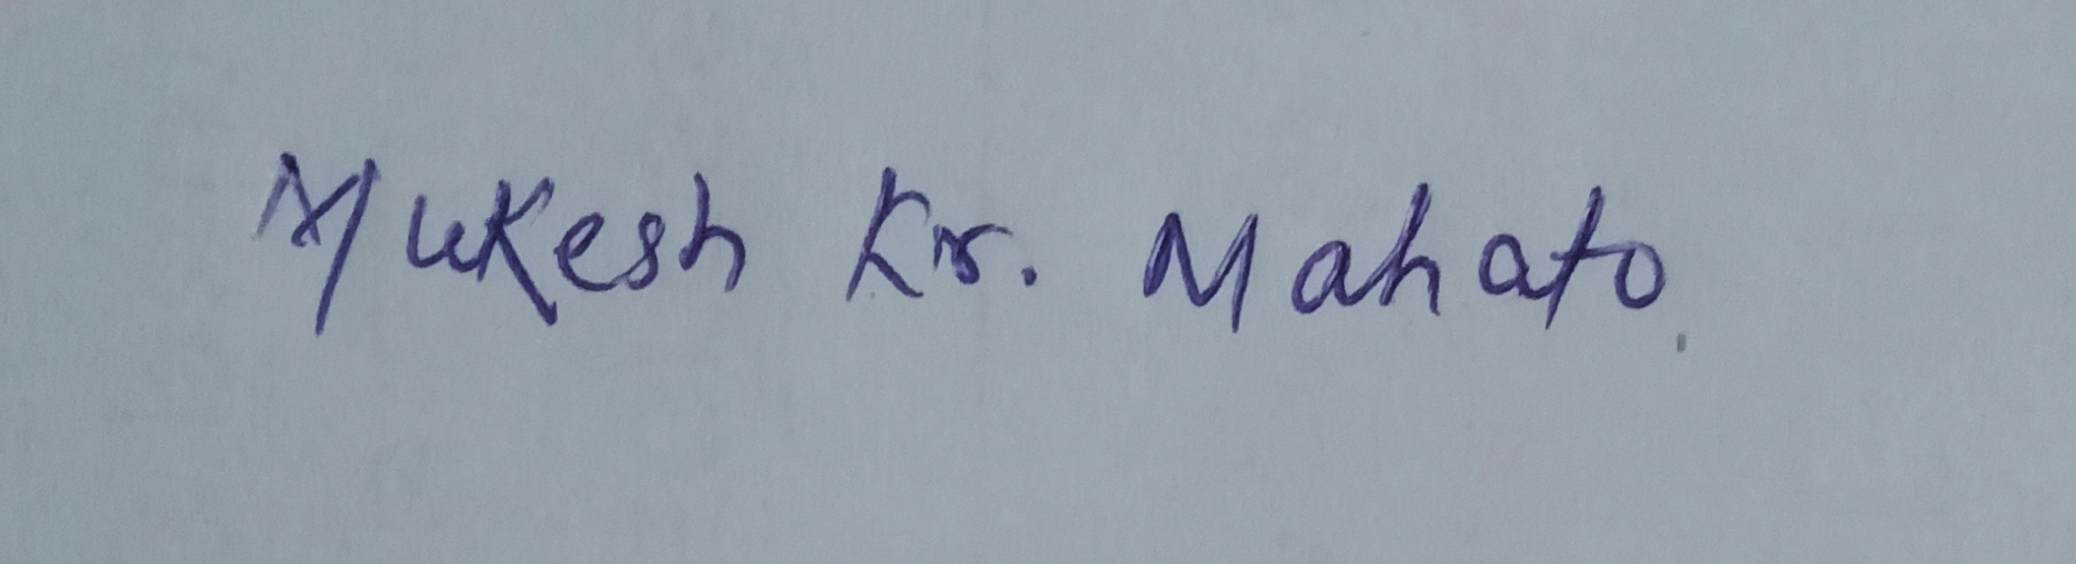 Mukesh Kr. Mahato